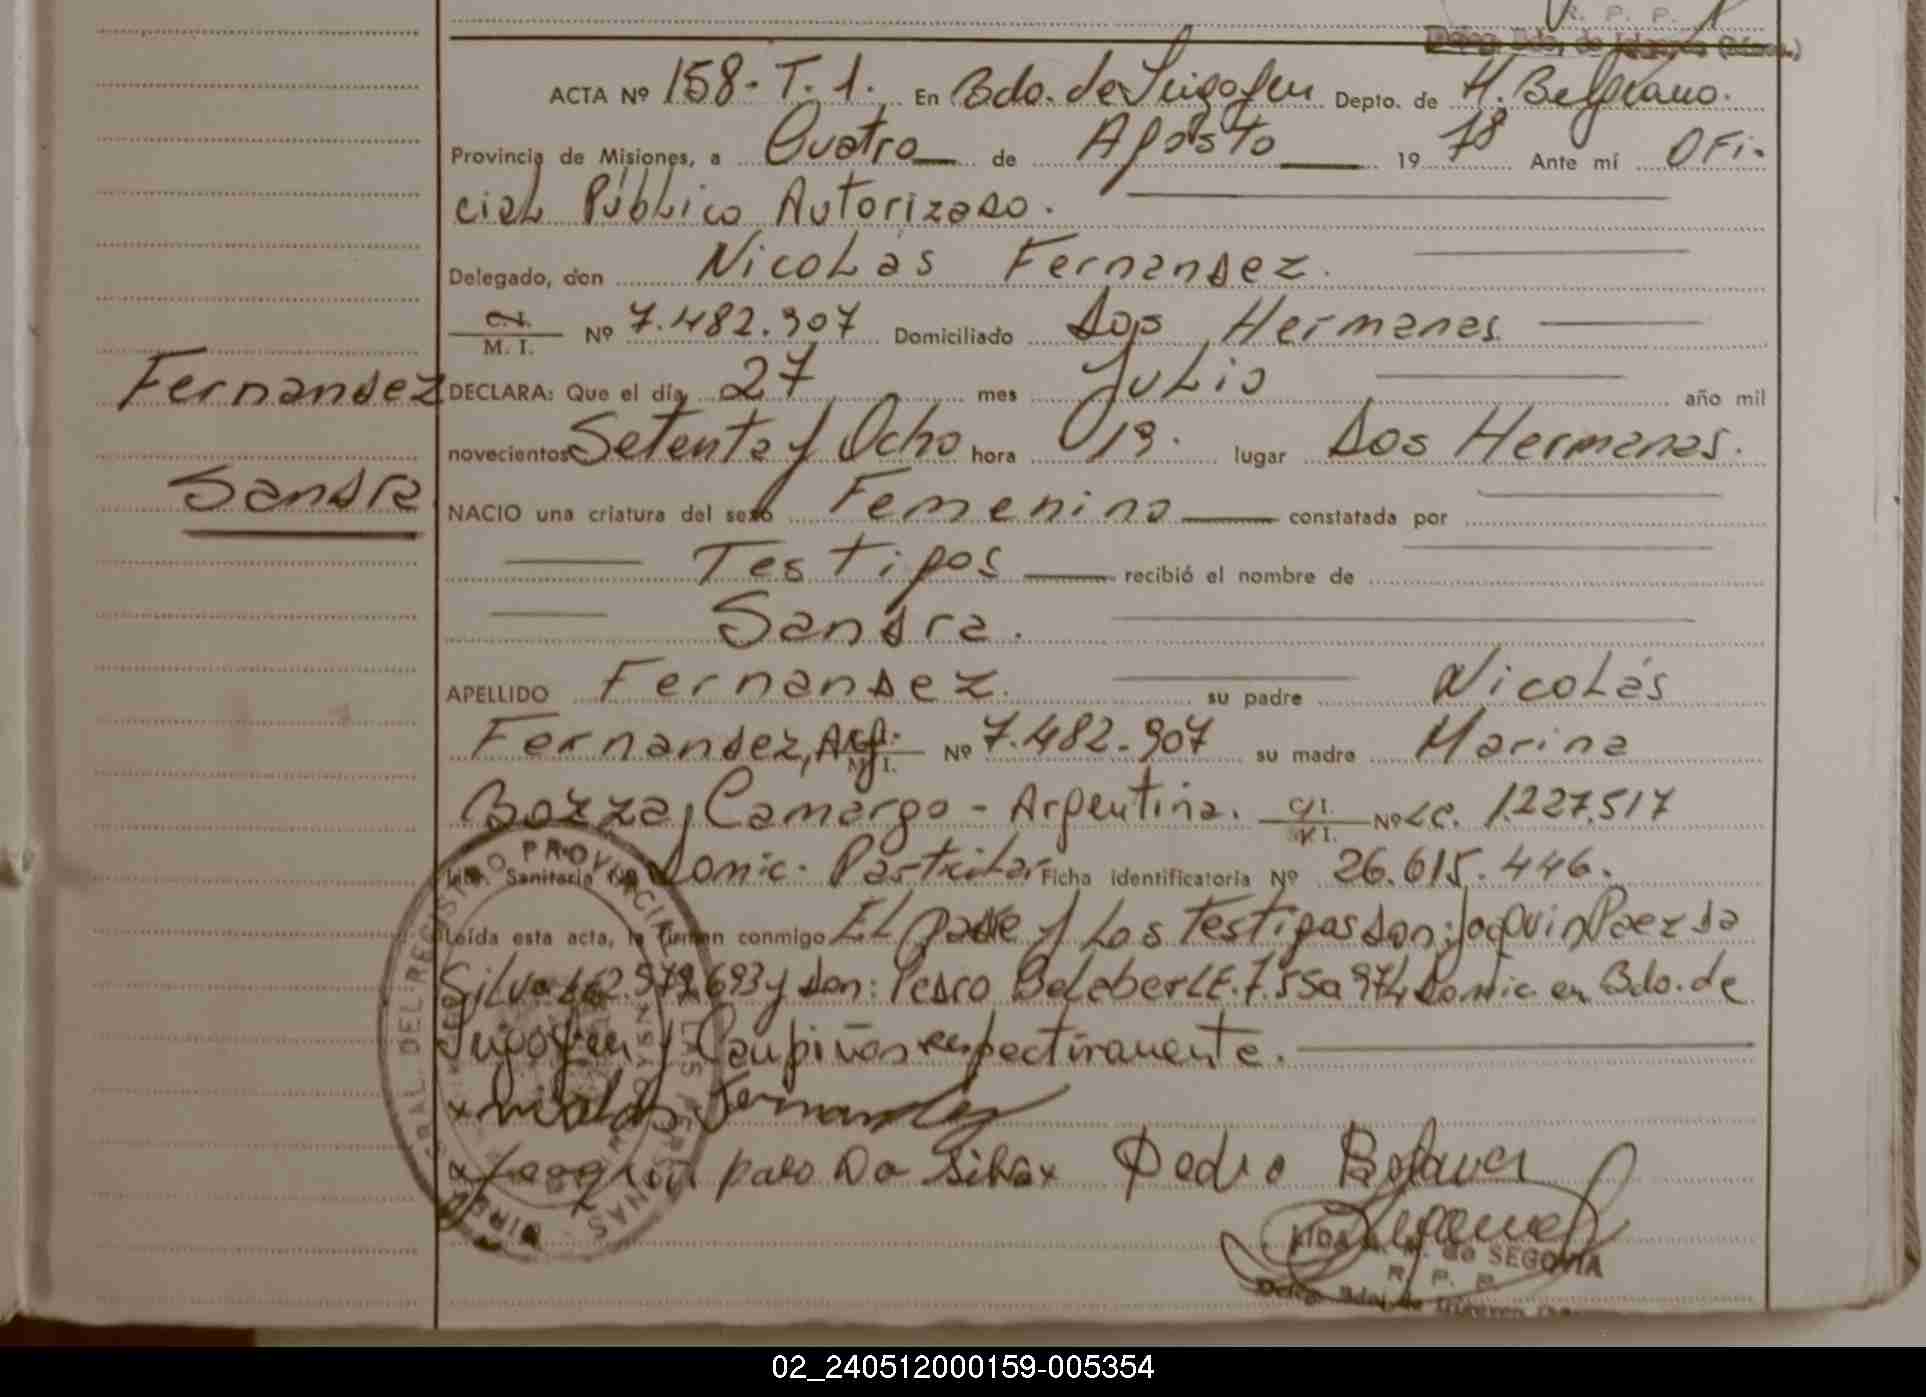 R. P. P.
ACTA Nº 158-T.1. En Bdo. de Irigoyen Depto. de H. Belgrano.
Provincia de Misiones, a Cuatro de Agosto 19 78 Ante mí Ofi-
cial Público Autorizado.
Delegado, don Nicolás Fernandez.
C.I.
M. I. Nº 7.482.907 Domiciliado Dos Hermanas
Fernandez DECLARA: Que el día 27 mes Julio año mil
novecientos Setenta y Ocho hora 19. lugar Dos Hermanas.
Sandra NACIO una criatura del sexo Femenino constatada por
Testigos recibió el nombre de
Sandra.
APELLIDO Fernandez. su padre Nicolás
Fernandez, Arg. M. I. Nº 7.482.907 su madre Marina
Bozza, Camargo - Argentina. C.I. Nº LC. 1.227.517
Sanitaria Nº Domic. Particular Ficha identificatoria Nº 26.615.446.
Leída esta acta, la firman conmigo El padre y los testigos don: Joaquin Paez da
Silva 693 y don: Pedro LE. 7.550 Domic. en Bdo. de
Irigoyen y Campiñas respectivamente.
x Nicolas Fernandez
x Joaquin paes Da Silva x Pedro
de SEGOVIA
R. P. P.
Deleg. Bdo. de Irigoyen
DIREC GRAL. DEL REGISTRO PROVINCIAL DE LAS PERSONAS
02_240512000159-005354